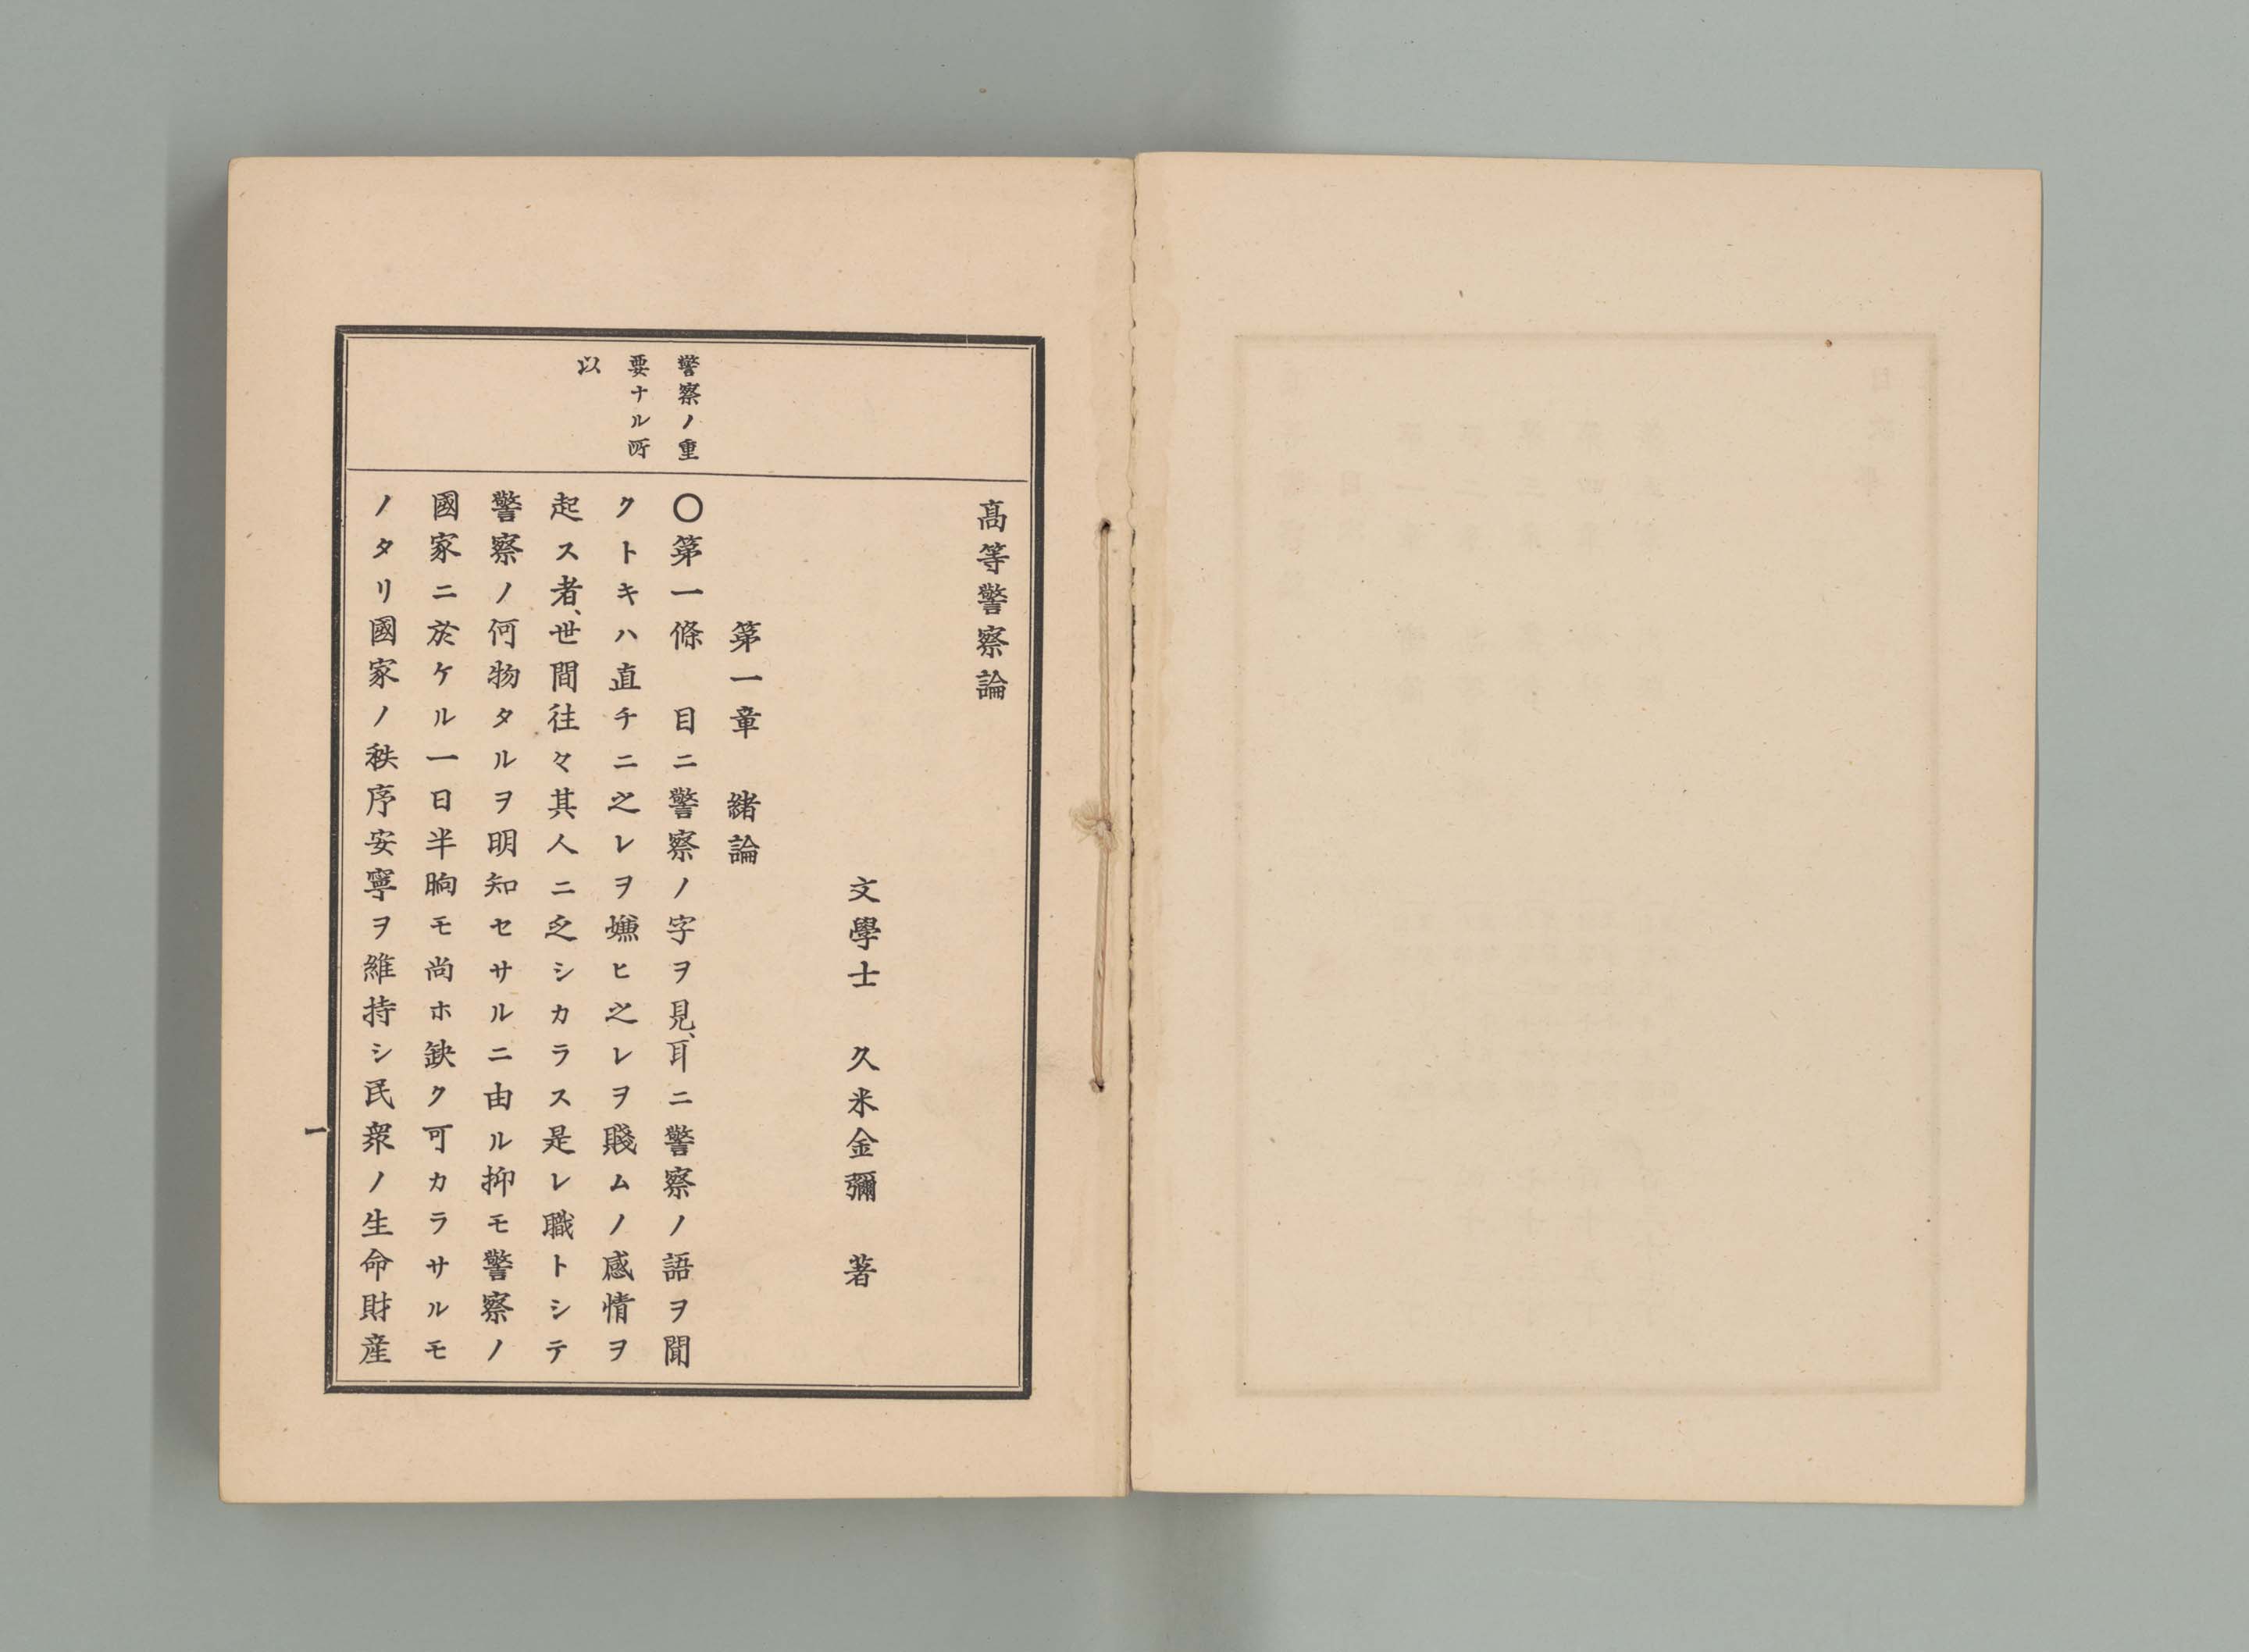 高等警察論
文學士　久米金彌　著
第一章　緒論
警察ノ重
要ナル所
以
〇第一條　目ニ警察ノ字ヲ見、耳ニ警察ノ語ヲ聞
クトキハ直チニ之レヲ嫌ヒ之レヲ賤ムノ感情ヲ
起ス者、世間往々其人ニ乏シカラス是レ職トシテ
警察ノ何物タルヲ明知セサルニ由ル抑モ警察ノ
國家ニ於ケル一日半晌モ尚ホ缺ク可カラサルモ
ノタリ國家ノ秩序安寧ヲ維持シ民衆ノ生命財産
一